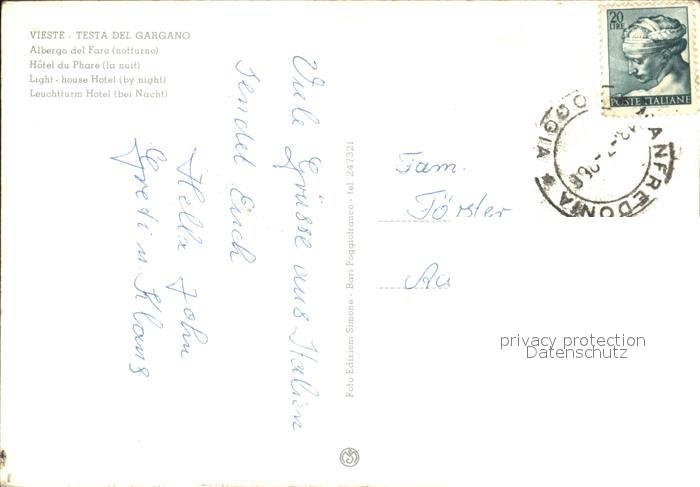 VIESTE - TESTA DEL GARGANO
Albergo del Faro (notturno)
Hôtel du Phare (la nuit)
Light - house Hotel (by night)
Leuchtturm Hotel (bei Nacht)
Viele Grüsse aus Italien
sendet Euch
Hella John
Greti u. Klaus
Foto Edizioni Simone - Bari Poggiofranco - tel. 247321
20
LIRE
POSTE ITALIANE
MANFREDONIA
FOGGIA
Fam.
Förster
Au
privacy protection
Datenschutz